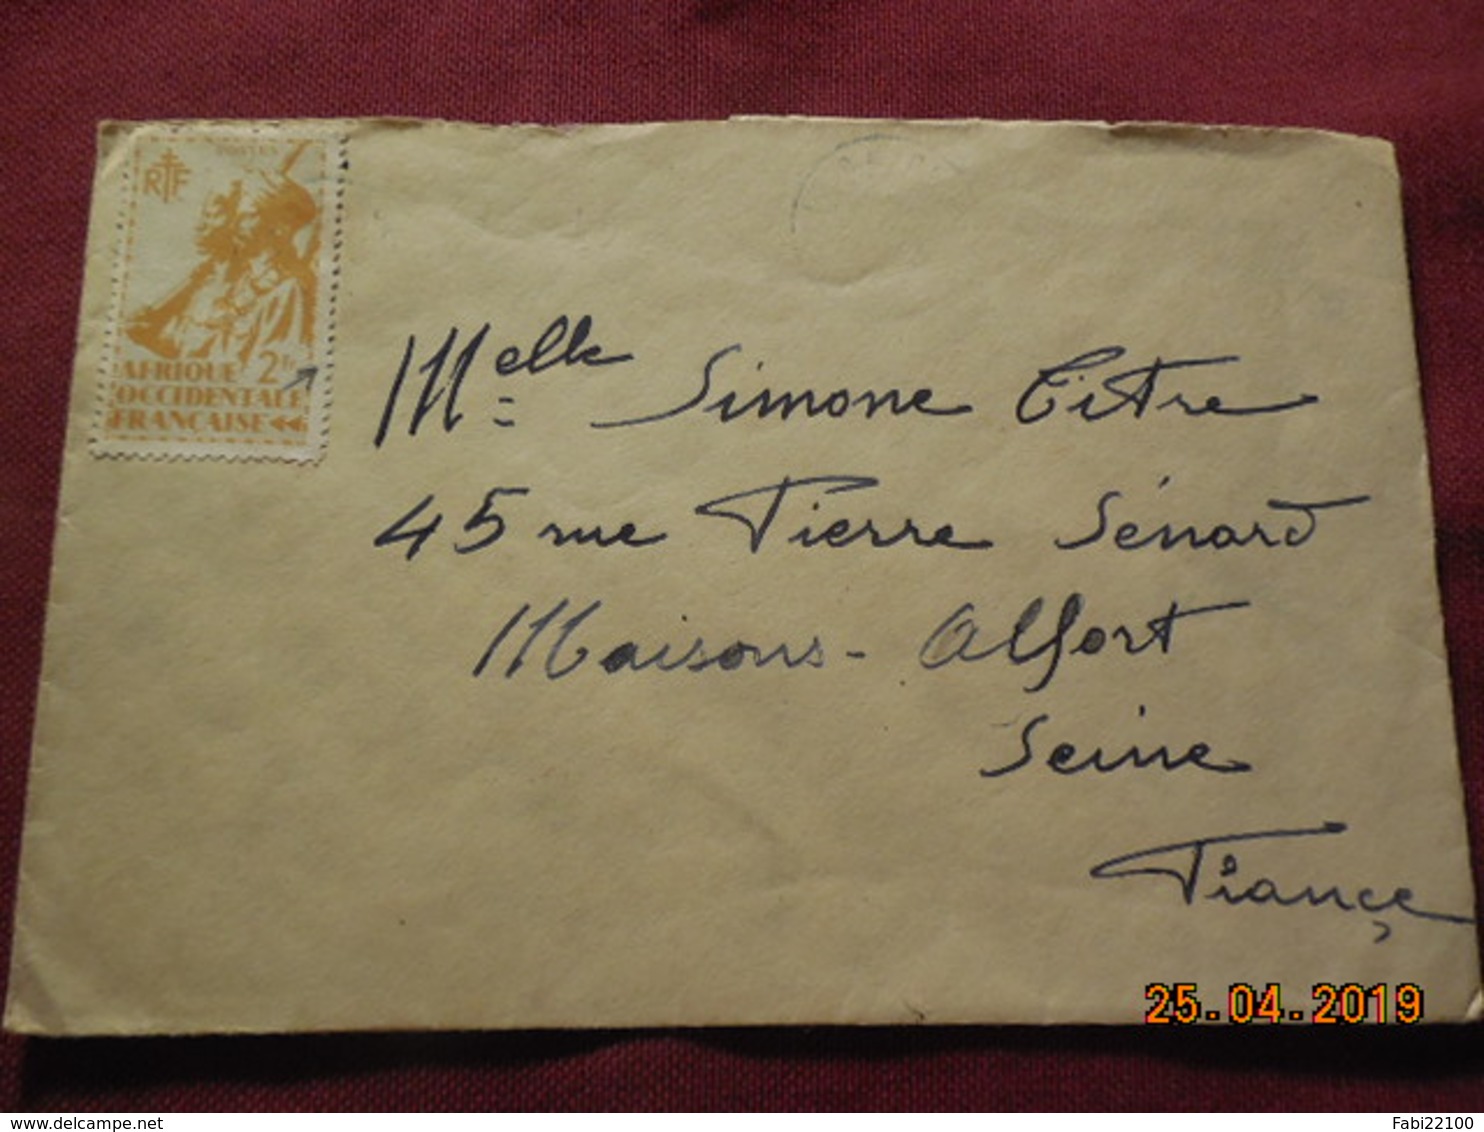 POSTES
RF
2 Fr
AFRIQUE
OCCIDENTALE
FRANÇAISE
Melle Simone Titre
45 rue Pierre Sénard
Maisons-Alfort
Seine
France
25.04.2019
delcampe.net
Fabi22100